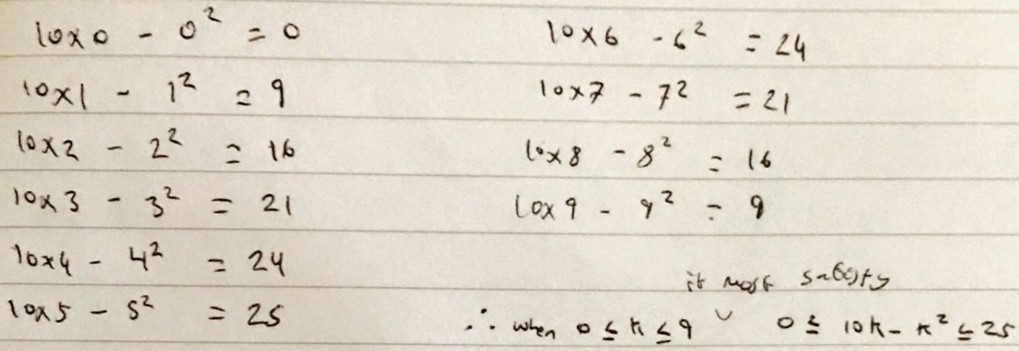 10×0 - 0² = 0
10×1 - 1² = 9
10×2 - 2² = 16
10×3 - 3² = 21
10×4 - 4² = 24
10×5 - 5² = 25
10×6 - 6² = 24
10×7 - 7² = 21
10×8 - 8² = 16
10×9 - 9² = 9
it must satisfy
∴ when 0 ≤ k ≤ 9 ∨ 0 ≤ 10k - k² ≤ 25